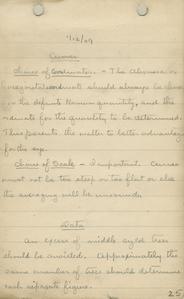 9/2/09
Curves
Choice of Coordinates. - The Abscissa or
horizontal ordinate should always be chosen
as the definite known quantity, and the
ordinate for the quantity to be determined.
This presents the matter to better advantage
for the eye.
Choice of Scale - Important. Curves
must not be too steep or too flat or else
the averaging will be
Data
An excess of middle aged trees
should be avoided. Approximately the
same number of trees should determine
each separate figure.
25